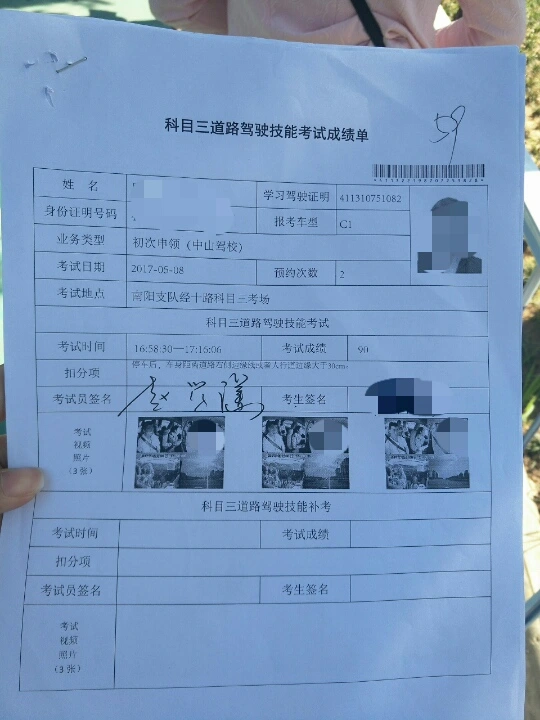 科目三道路驾驶技能考试成绩单
59
姓 名
学习驾驶证明 411310751082
身份证明号码
报考车型 C1
业务类型 初次申领（中山驾校）
考试日期 2017-05-08 预约次数 2
考试地点 南阳支队经十路科目三考场
科目三道路驾驶技能考试
考试时间 16:58:30—17:16:06 考试成绩 90
扣分项 停车后，车身距离道路右侧边缘线或者人行道边缘大于30cm。
考试员签名 考生签名
考试
视频
照片
（3 张）
科目三道路驾驶技能补考
考试时间 考试成绩
扣分项
考试员签名 考生签名
考试
视频
照片
（3 张）